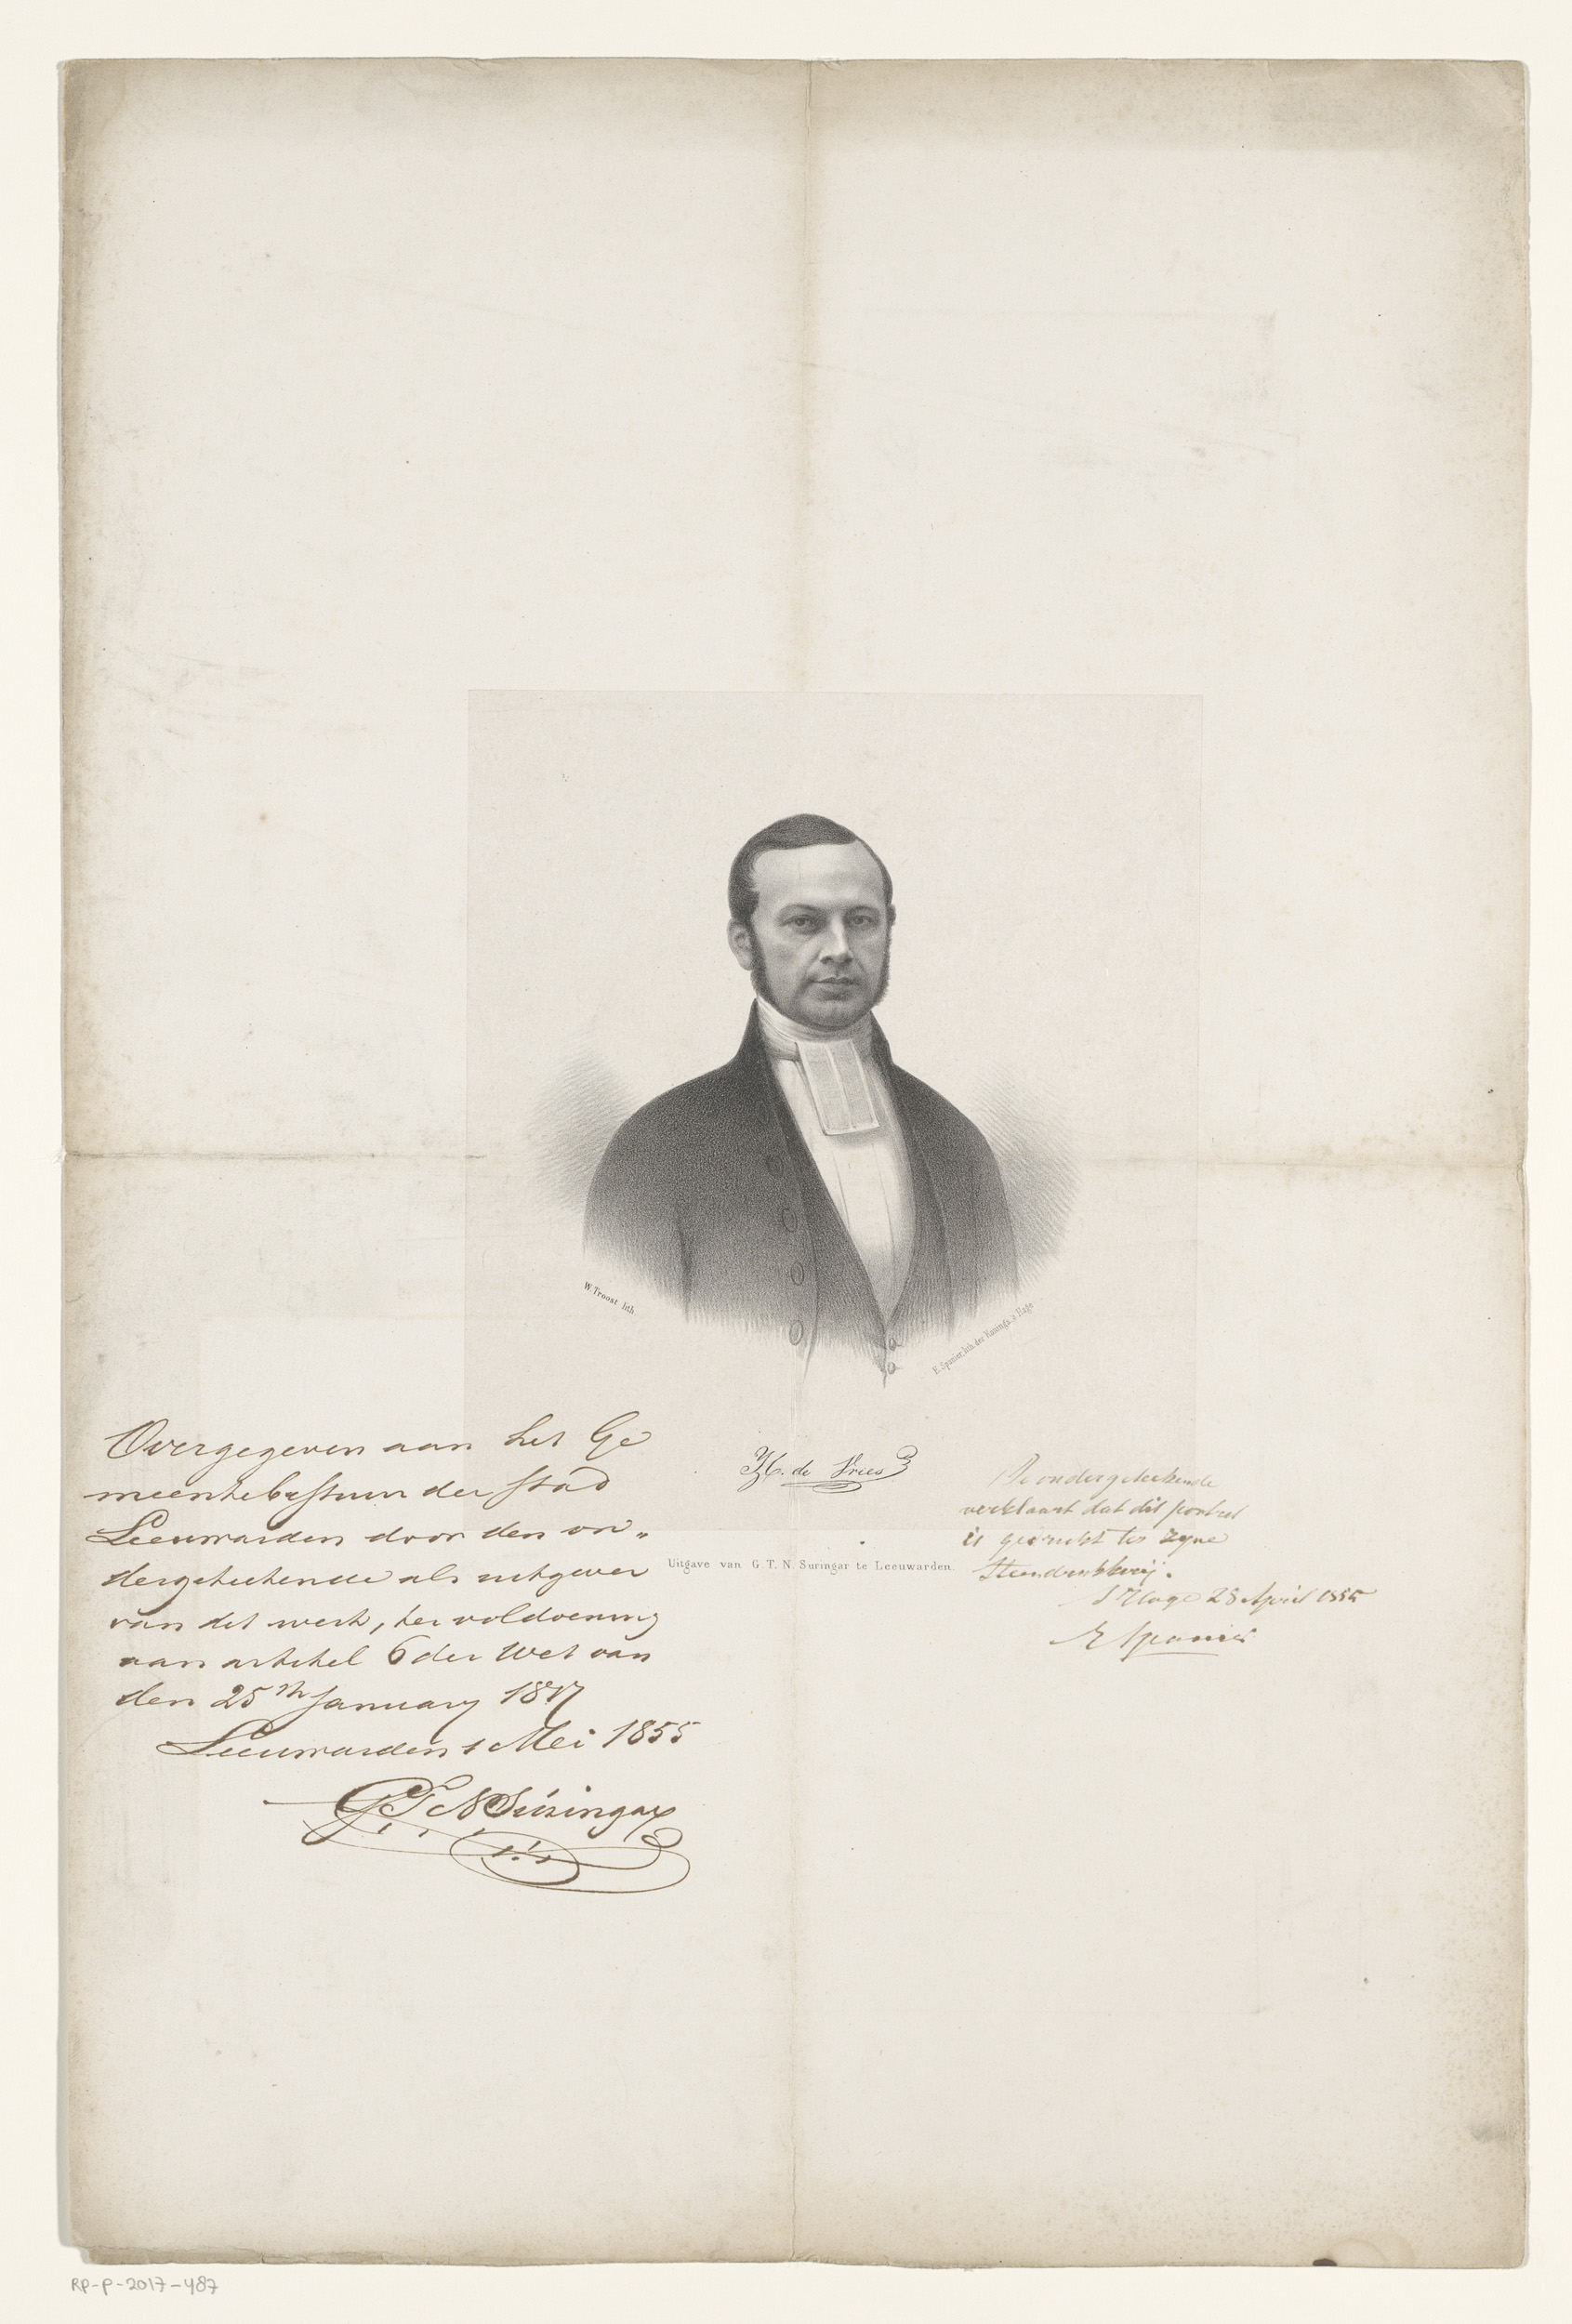 W. Troost lith.
E. Spanier, lith. des Konings. 's Hage
H. de Vries
Uitgave van G. T. N. Suringar te Leeuwarden.
Overgegeven aan het Ge
meentebestuur der stad
Leeuwarden door den on„
dergeteekende als uitgever
van dit werk, ter voldoening
aan artikel 6 der Wet van
den 25sten January 1817
Leeuwarden 1 Mei 1855
G. T. N. Suringar
De ondergeteekende
verklaart dat dit portret
is gedrukt ter zyne
Steendrukkerij.
s'Hage 28 April 1855
E Spanier
RP-P-2017-487